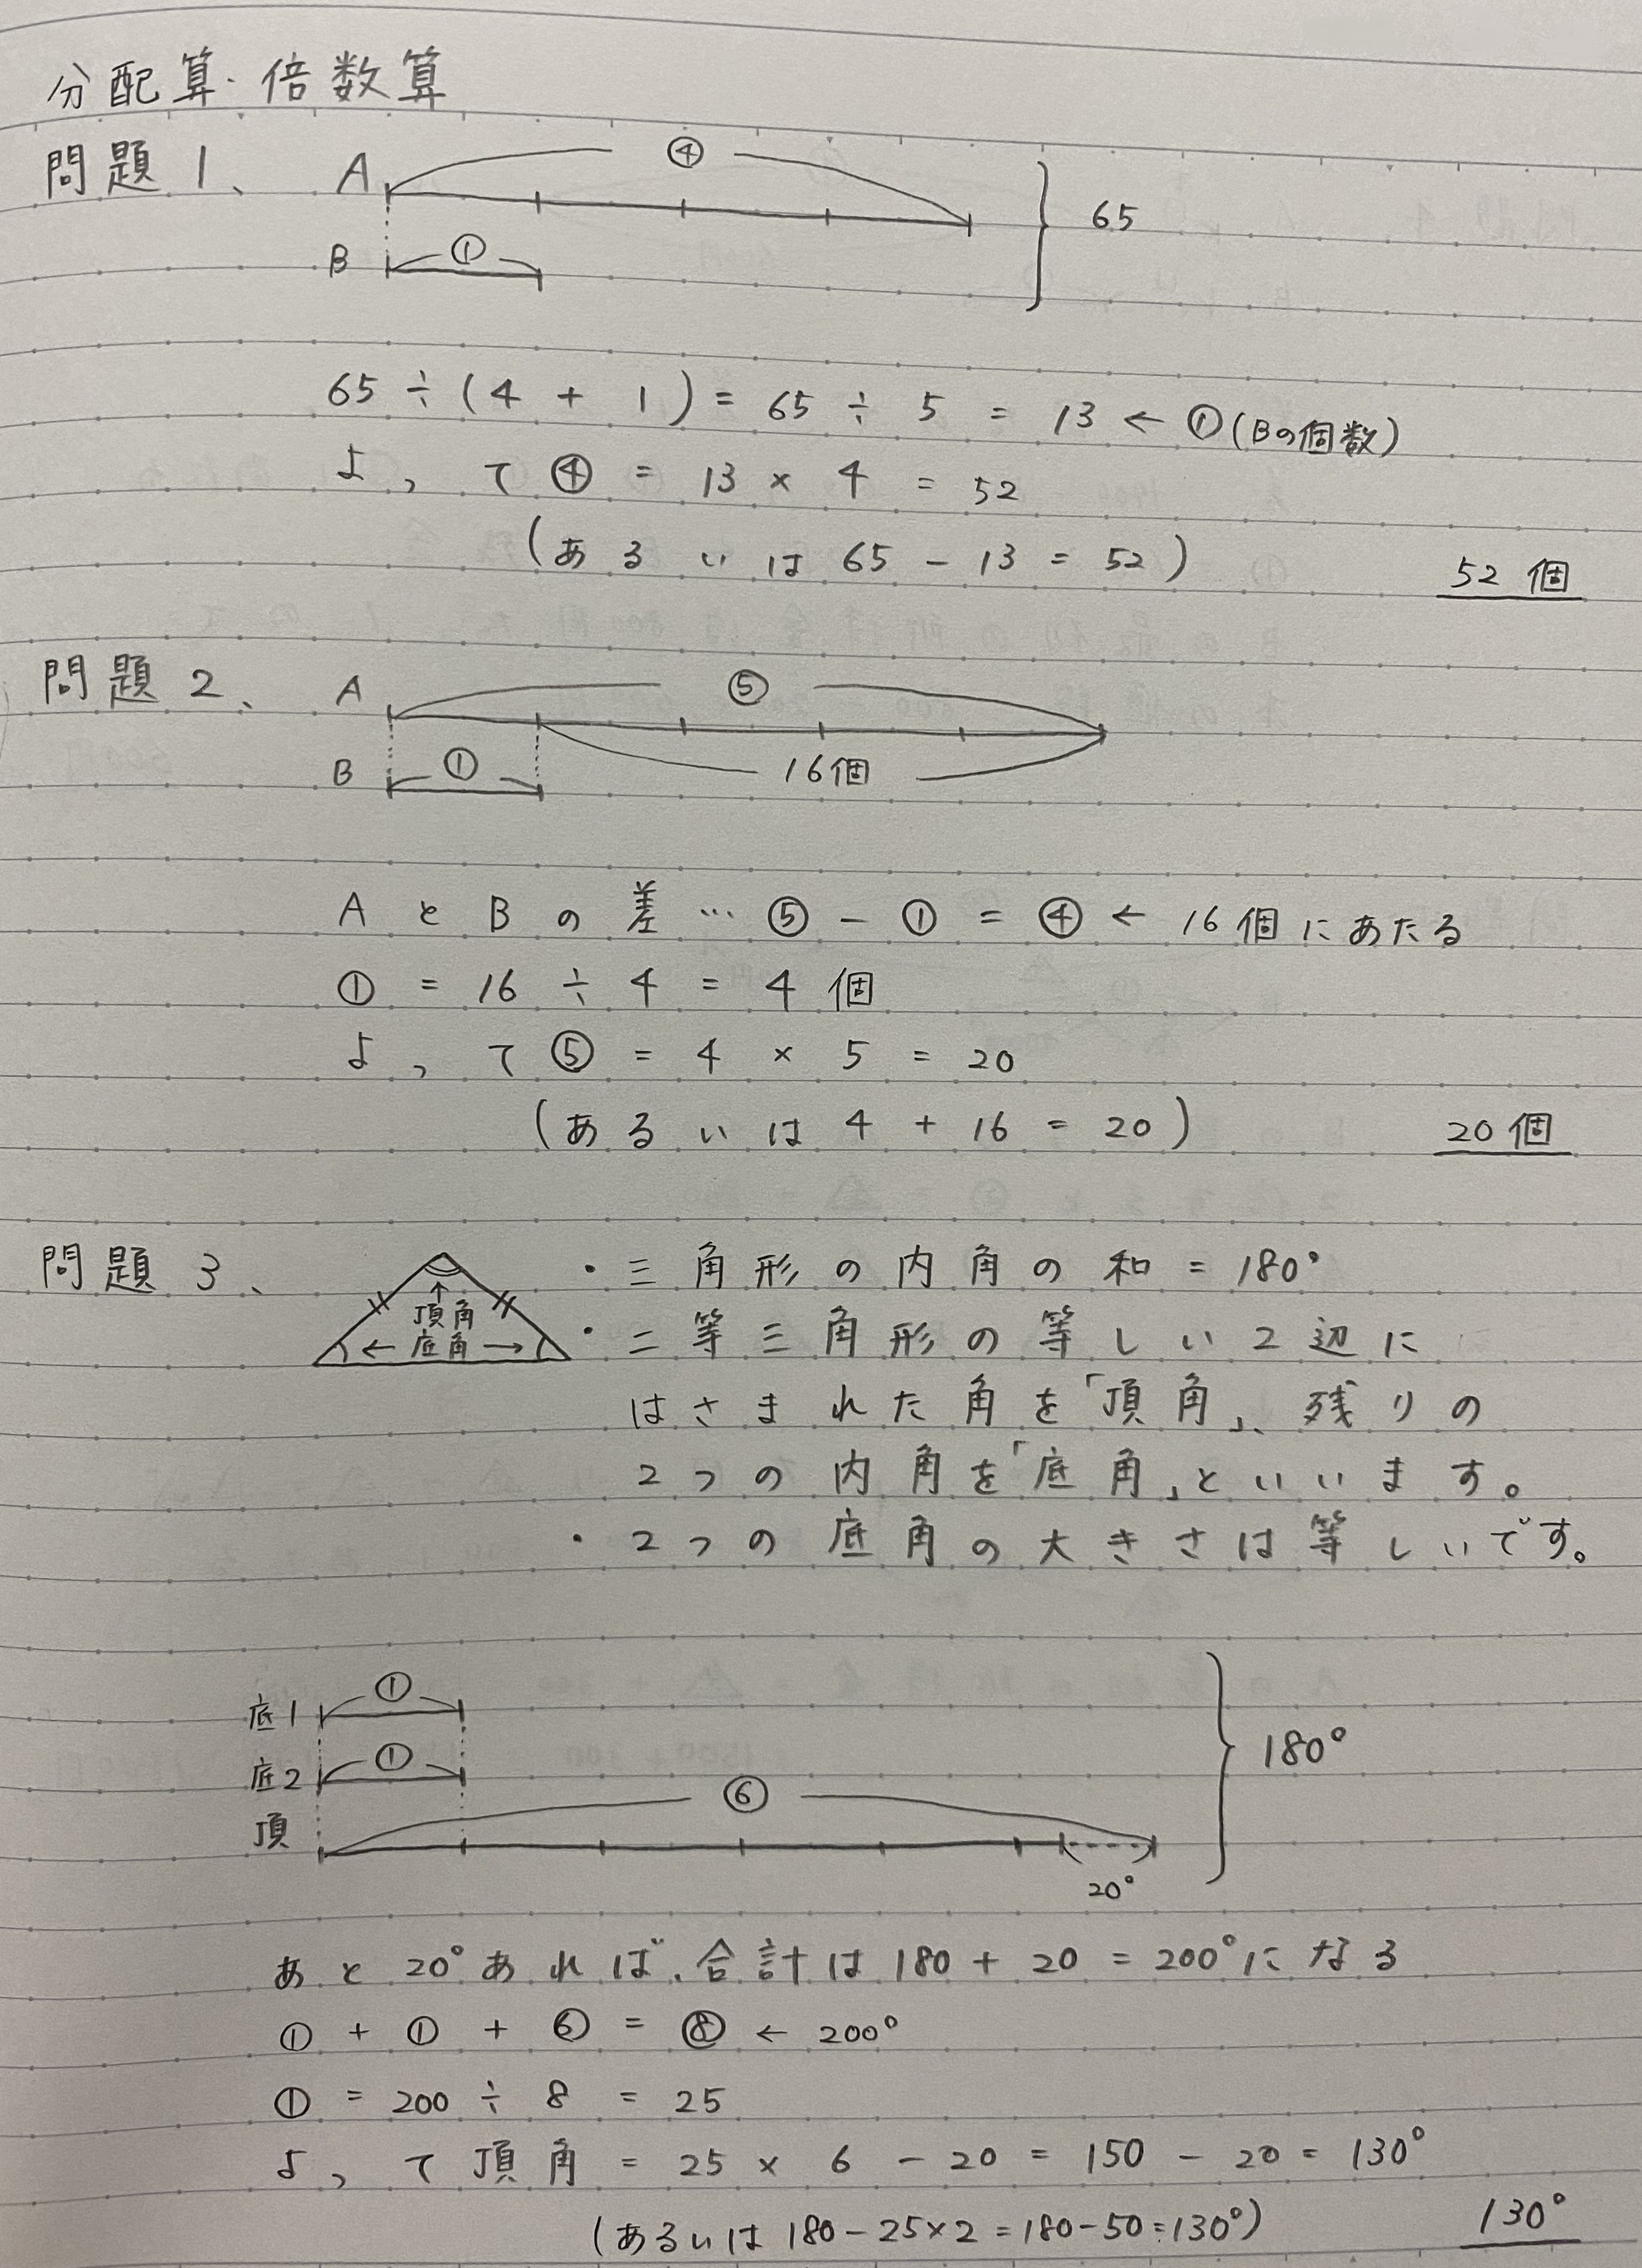 分配算・倍数算
問題1、
A ④
B ①
65
65÷(4+1)=65÷5=13←①(Bの個数)
よって④=13×4=52
(あるいは65-13=52)
52個
問題2、
A ⑤
B ① 16個
AとBの差…⑤-①=④←16個にあたる
①=16÷4=4個
よって⑤=4×5=20
(あるいは4+16=20)
20個
問題3、
↑
頂角
←底角→
・三角形の内角の和=180°
・二等三角形の等しい2辺に
はさまれた角を「頂角」、残りの
2つの内角を「底角」といいます。
・2つの底角の大きさは等しいです。
底1 ①
底2 ①
頂 ⑥
20°
180°
あと20°あれば、合計は180+20=200°になる
①+①+⑥=⑧←200°
①=200÷8=25
よって頂角=25×6-20=150-20=130°
(あるいは180-25×2=180-50=130°)
130°